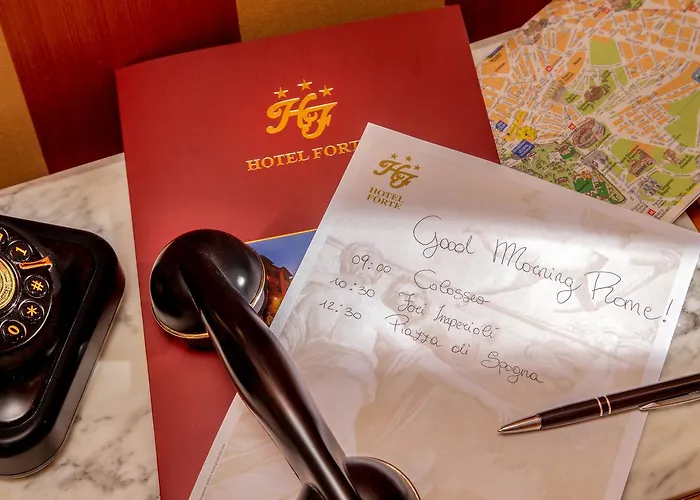 HF
HOTEL FORTE
HF
HOTEL
FORTE
Good Morning Rome!
09:00 Colosseo
10:30 Fori Imperiali
12:30 Piazza di Spagna
1
*
0
#